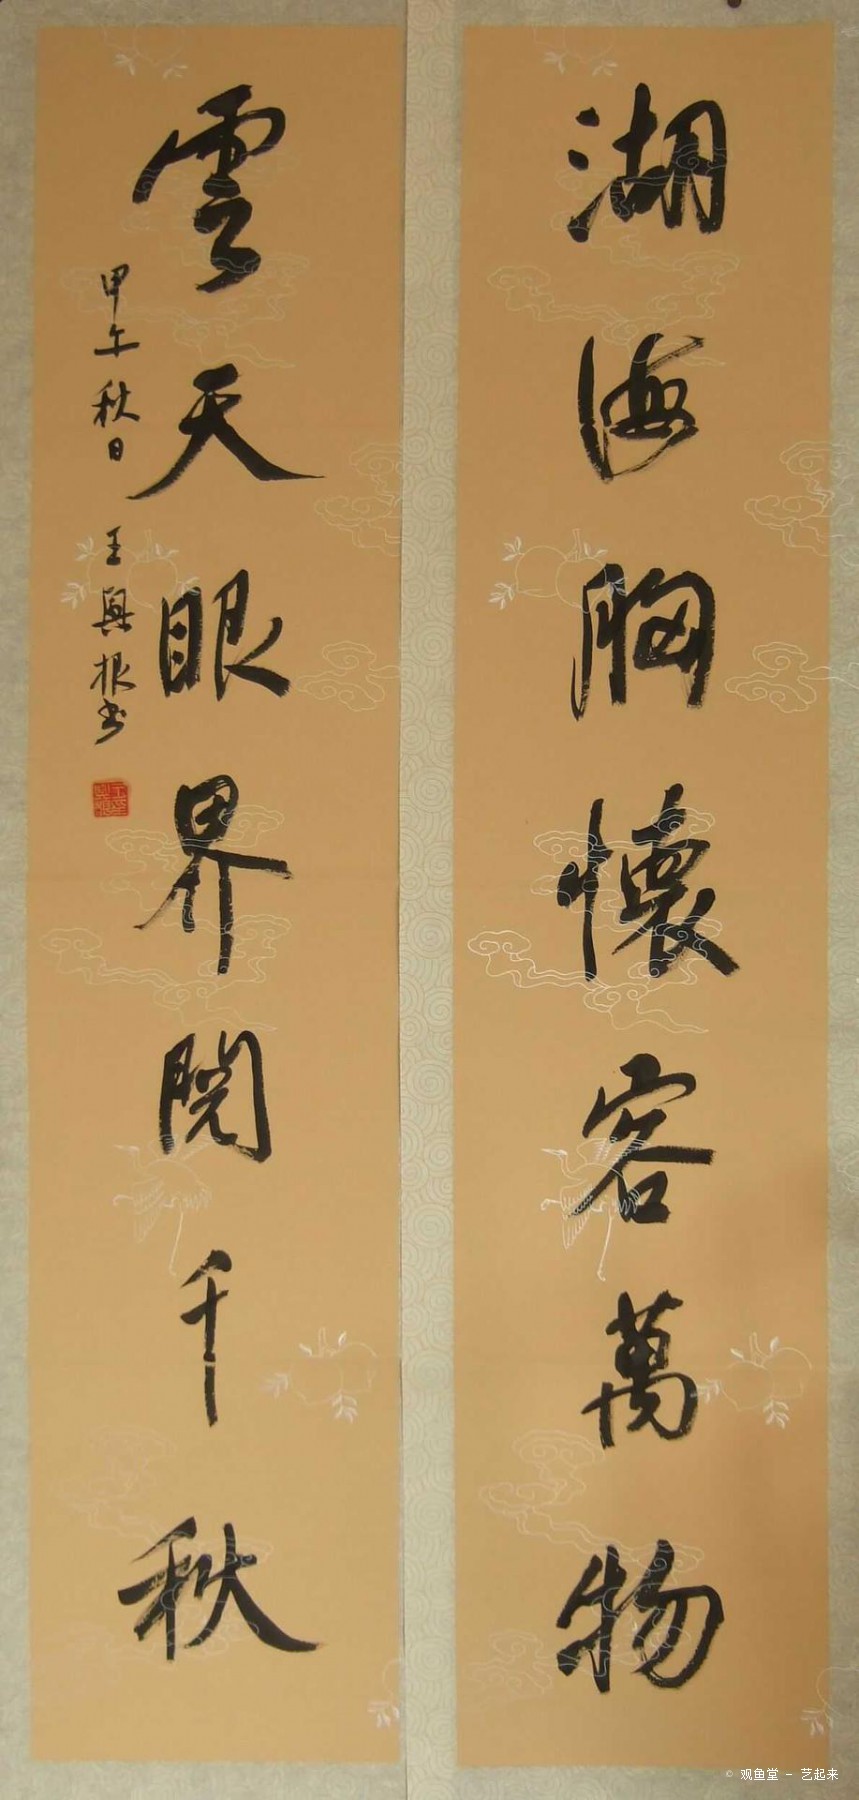 湖海胸懷容萬物
雲天眼界閱千秋
甲午秋日 王興根书
© 观鱼堂 - 艺起来